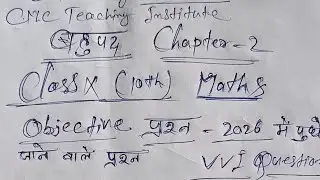 CMC Teaching Institute
बहुपद Chapter-2
Class X (10th) Maths
Objective प्रश्न - 2026 में पुछे
जाने वाले प्रश्न VVI Question